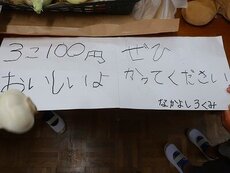 3こ100円
おいしいよ
ぜひ
かってください
なかよし3くみ